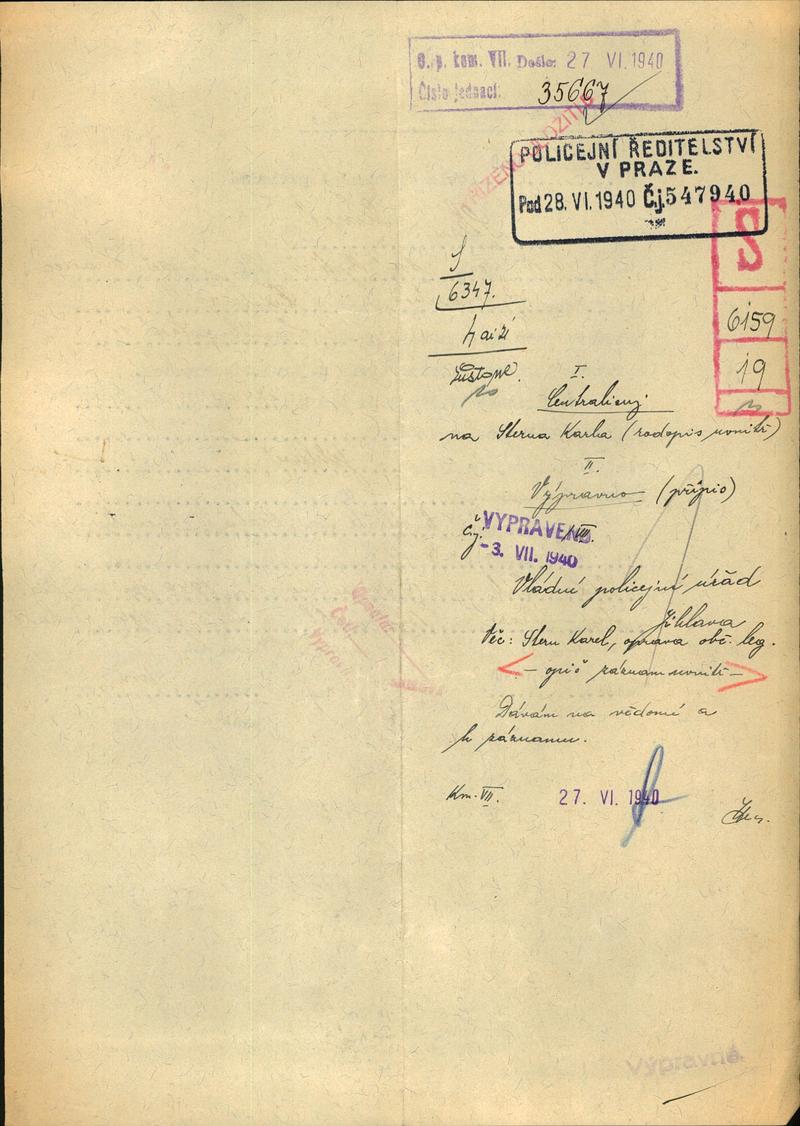 O. p. kom. VII. Došlo: 27 VI. 1940
Číslo jednací: 35667
POLICEJNÍ ŘEDITELSTVÍ
V PRAZE.
Pod 28. VI. 1940 Čj. 547940
S
6347.
S
6159
19
I.
na Sterna Karla (rodopis uvnitř)
II.
Výpravno (přípis)
Čj. VII.
VYPRAVENO
-3. VII. 1940
Vládní policejní úřad
Jihlava
Věc: Stern Karel, oprava obč. leg.
— opiš záznam uvnitř —
Dávám na vědomí a
k záznamu.
Km. VII.
27. VI. 1940
Výpravně.